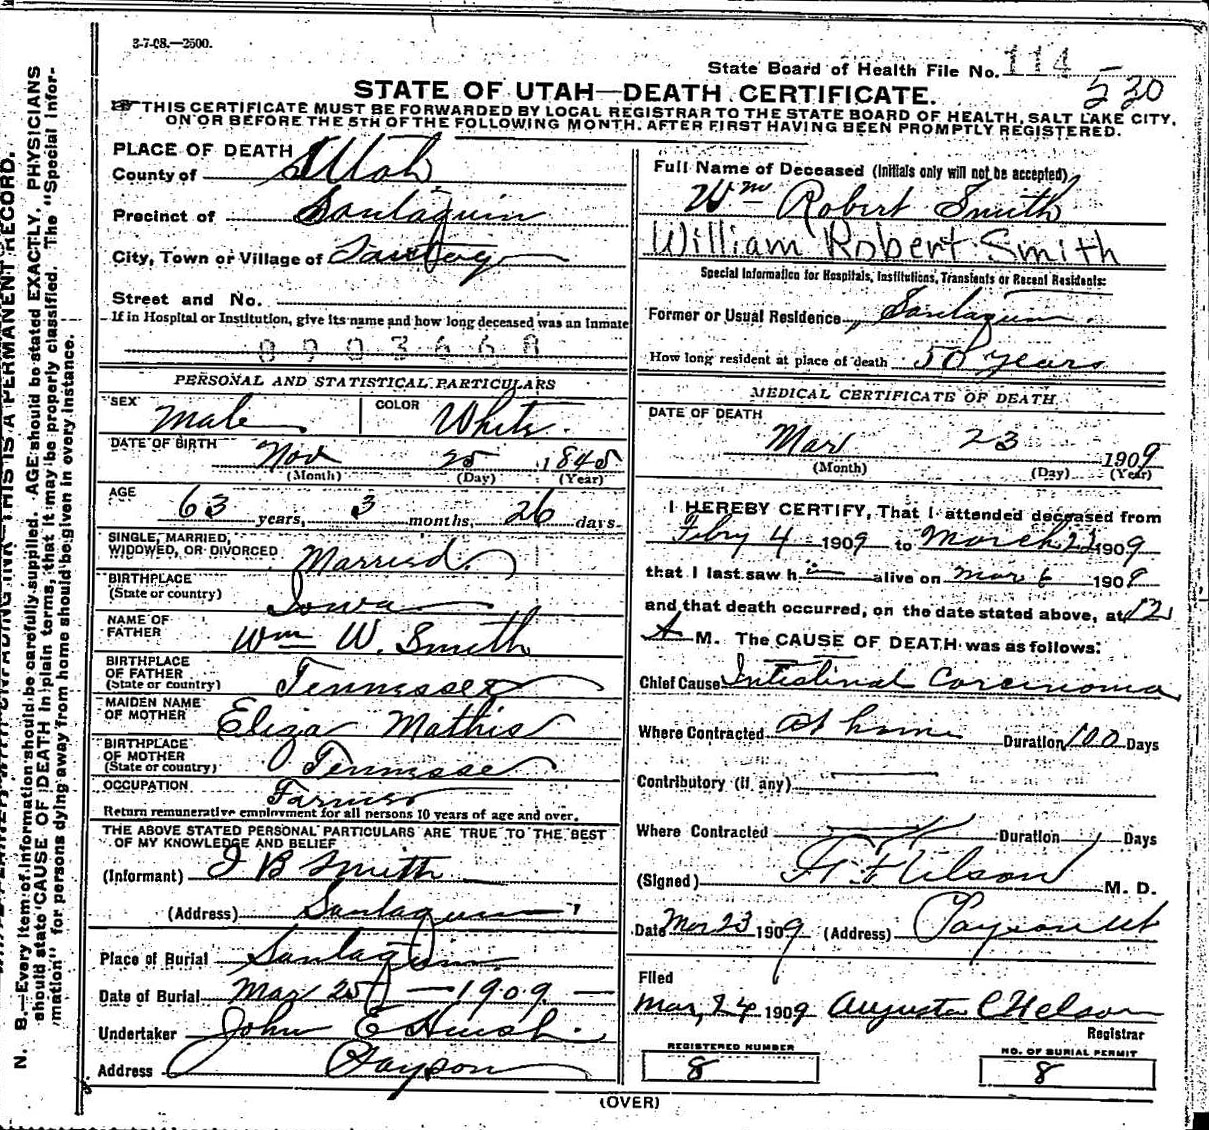 3-7-08.—2500.
State Board of Health File No. 114
520
STATE OF UTAH—DEATH CERTIFICATE.
THIS CERTIFICATE MUST BE FORWARDED BY LOCAL REGISTRAR TO THE STATE BOARD OF HEALTH, SALT LAKE CITY,
ON OR BEFORE THE 5TH OF THE FOLLOWING MONTH, AFTER FIRST HAVING BEEN PROMPTLY REGISTERED.
PLACE OF DEATH
County of Utah
Precinct of Santaquin
City, Town or Village of
Street and No.
If in Hospital or Institution, give its name and how long deceased was an inmate
PERSONAL AND STATISTICAL PARTICULARS
SEX Male COLOR White
DATE OF BIRTH Nov 25 1845
(Month) (Day) (Year)
AGE 63 years, 3 months, 26 days
SINGLE, MARRIED, WIDOWED, OR DIVORCED Married
BIRTHPLACE (State or country) Iowa
NAME OF FATHER Wm W. Smith
BIRTHPLACE OF FATHER (State or country) Tennessee
MAIDEN NAME OF MOTHER Eliza Mathis
BIRTHPLACE OF MOTHER (State or country) Tennessee
OCCUPATION Farmer
Return remunerative employment for all persons 10 years of age and over.
THE ABOVE STATED PERSONAL PARTICULARS ARE TRUE TO THE BEST
OF MY KNOWLEDGE AND BELIEF
(Informant) J B Smith
(Address) Santaquin
Place of Burial Santaquin
Date of Burial Mar 25 — 1909 —
Undertaker John E
Address Payson
Full Name of Deceased (Initials only will not be accepted)
Wm Robert Smith
William Robert Smith
Special Information for Hospitals, Institutions, Transients or Recent Residents:
Former or Usual Residence Santaquin
How long resident at place of death 50 years
MEDICAL CERTIFICATE OF DEATH
DATE OF DEATH
Mar 23 1909
(Month) (Day) (Year)
I HEREBY CERTIFY, That I attended deceased from
Febry 4 1909 to March 23 1909
that I last saw h alive on Mar 6 1909
and that death occurred, on the date stated above, at 12
A M. The CAUSE OF DEATH was as follows:
Chief Cause Intestinal Carcinoma
Where Contracted at home Duration 100 Days
Contributory (if any)
Where Contracted Duration Days
(Signed) M. D.
Date Mar 23 1909 (Address) Payson Ut
Filed
Mar, 24 1909 Augusta C Nelson
Registrar
REGISTERED NUMBER
8
NO. OF BURIAL PERMIT
8
(OVER)
N. B.—Every item of information should be carefully supplied. AGE should be stated EXACTLY. PHYSICIANS
should state CAUSE OF DEATH in plain terms, that it may be properly classified. The "Special Infor-
mation" for persons dying away from home should be given in every instance.
THIS IS A PERMANENT RECORD.